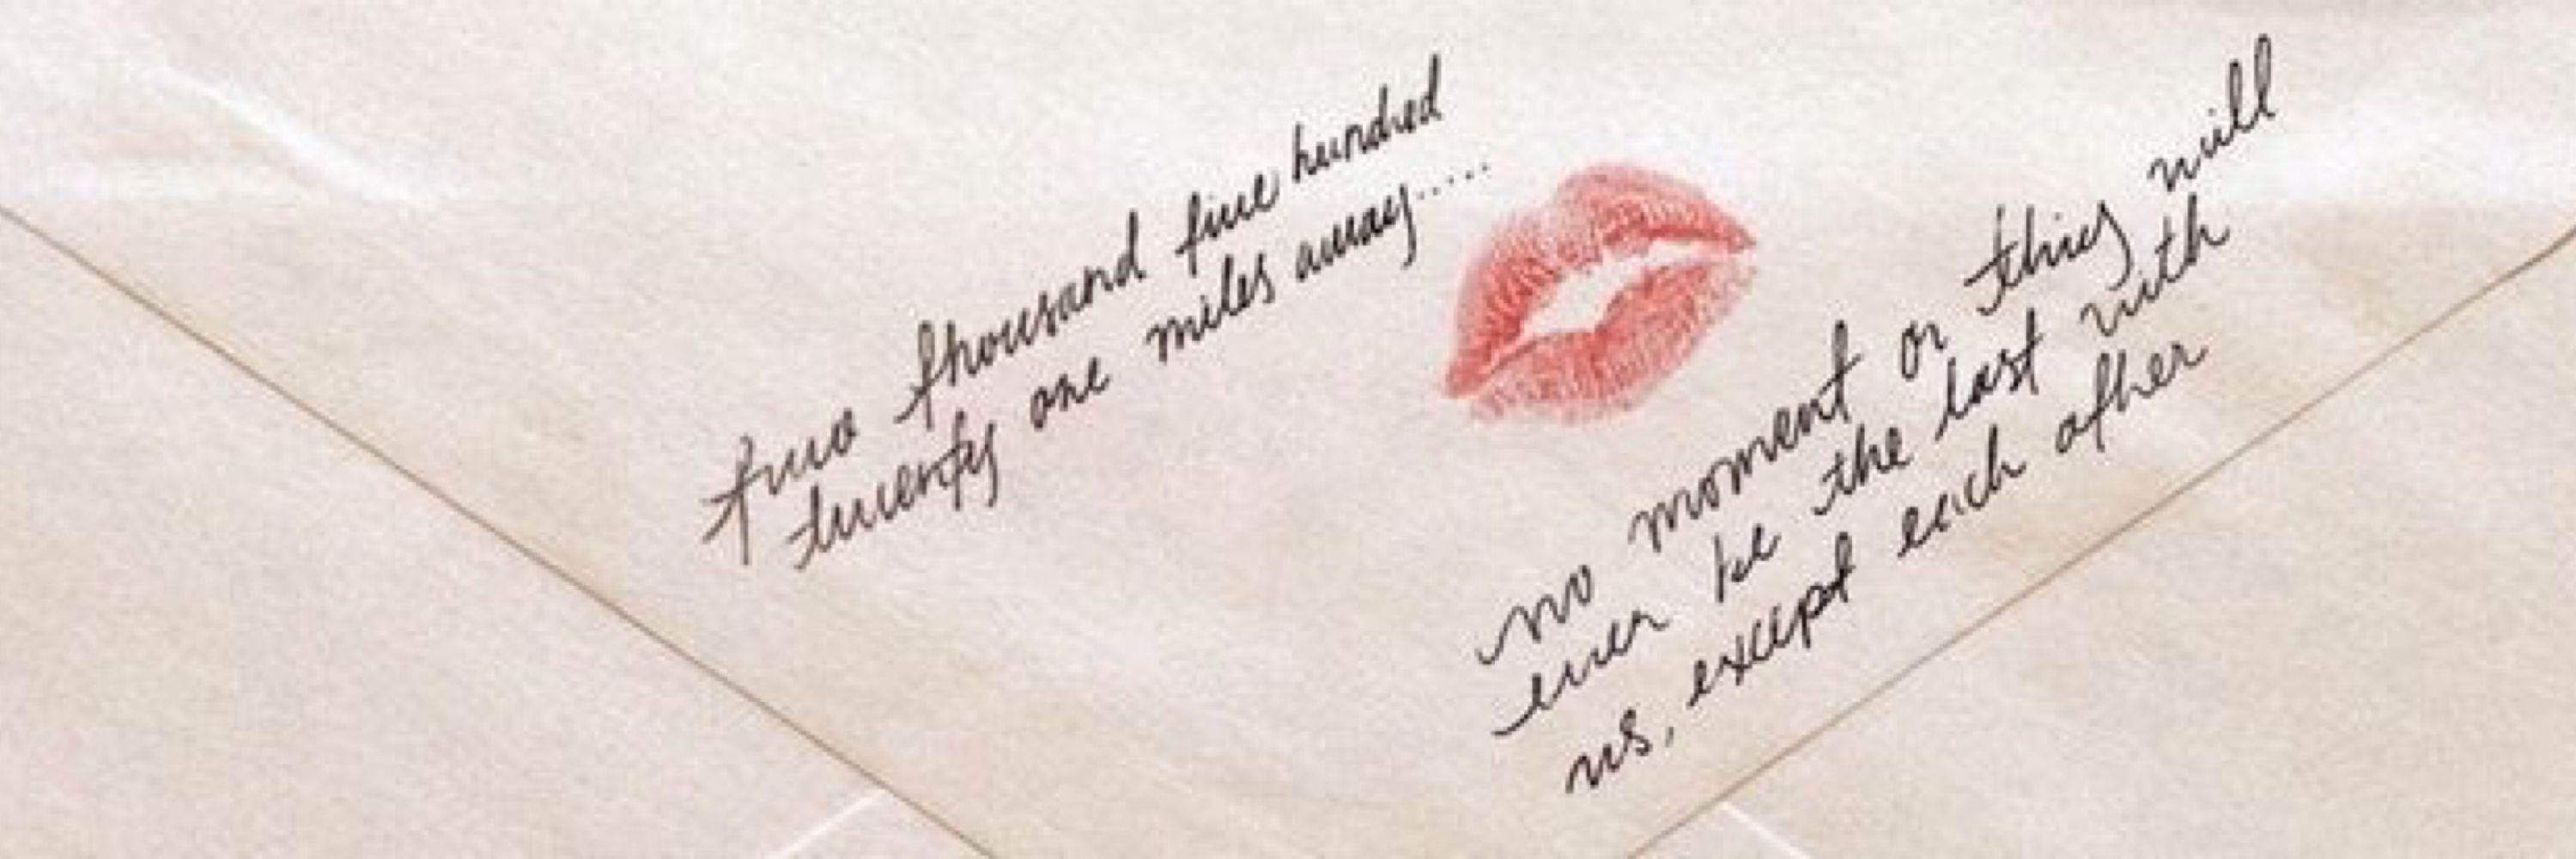 two thousand five hundred
twenty one miles away.....
no moment or this will
ever be the last with
us, except each after